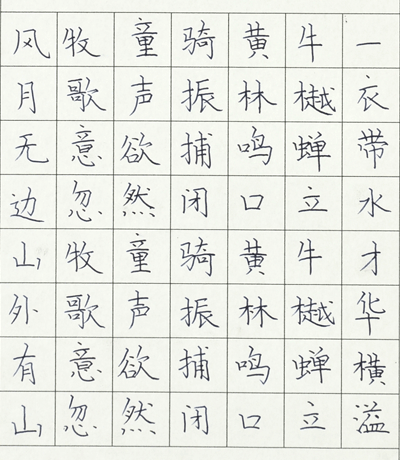 风牧童骑黄牛一
月歌声振林樾衣
无意欲捕鸣蝉带
边忽然闭口立水
山牧童骑黄牛才
外歌声振林樾华
有意欲捕鸣蝉横
山忽然闭口立溢